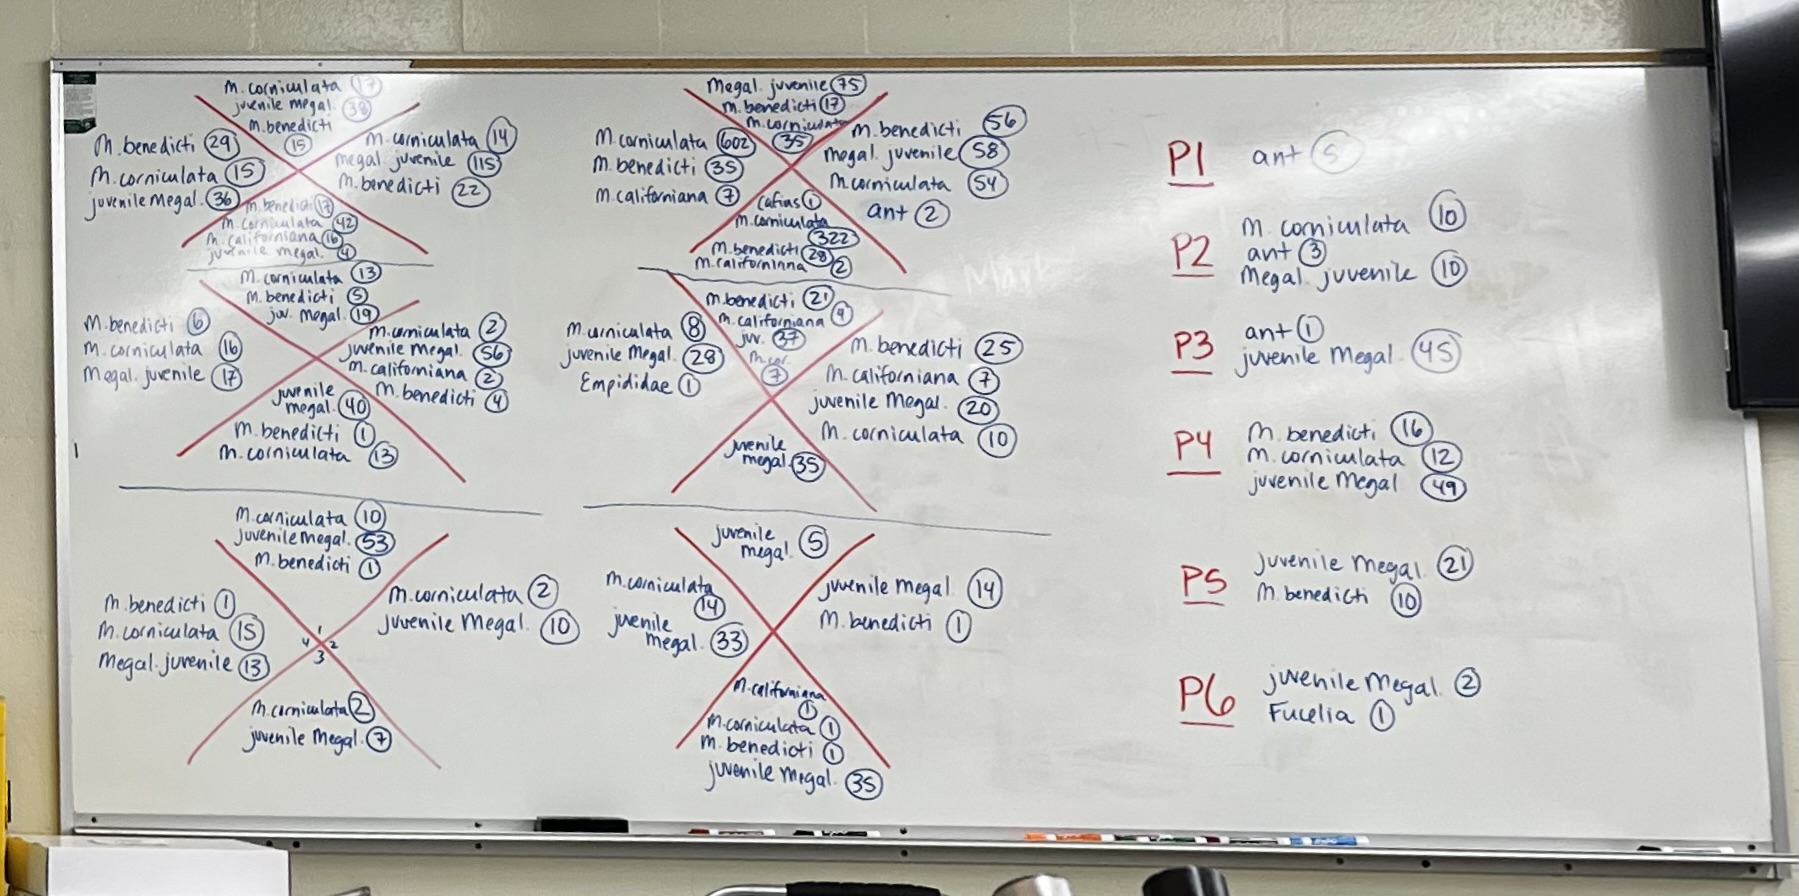 M. corniculata 17
juvenile megal. 38
M. benedicti
15
M. benedicti 29
M. corniculata 15
juvenile Megal. 36
M. corniculata 14
megal. juvenile 115
M. benedicti 22
M. benedicti 17
M. corniculata 42
M. californiana 16
juvenile megal. 4
M. corniculata 13
M. benedicti 5
juv. megal. 19
M. benedicti 6
M. corniculata 16
Megal. juvenile 17
M. corniculata 2
juvenile Megal. 56
M. californiana 2
M. benedicti 4
juvenile
megal. 40
M. benedicti 1
M. corniculata 13
M. corniculata 10
juvenile megal. 53
M. benedicti 1
M. benedicti 1
M. corniculata 15
Megal. juvenile 13
M. corniculata 2
juvenile Megal. 10
1
4 2
3
M. corniculata 2
juvenile Megal. 7
Megal. juvenile 75
M. benedicti 17
M. corniculata
35
M. corniculata 602
M. benedicti 35
M. californiana 7
M. benedicti 56
megal. juvenile 58
M. corniculata 54
ant 2
Cafius 1
M. corniculata
322
M. benedicti 28
M. californinna 2
M. benedicti 21
M. californiana 9
juv. 37
M. cor.
7
M. corniculata 8
juvenile Megal. 28
Empididae 1
M. benedicti 25
M. californiana 7
juvenile Megal. 20
M. corniculata 10
juvenile
megal. 35
juvenile
megal. 5
M. corniculata
14
juvenile
megal. 33
juvenile megal. 14
M. benedicti 1
M. californiana
1
M. corniculata 1
M. benedicti 1
juvenile Megal. 35
P1 ant 5
P2 M. corniculata 10
ant 3
Megal. juvenile 10
P3 ant 1
juvenile Megal. 45
P4 M. benedicti 16
M. corniculata 12
juvenile Megal 49
P5 juvenile Megal. 21
M. benedicti 10
P6 juvenile Megal. 2
Fucelia 1